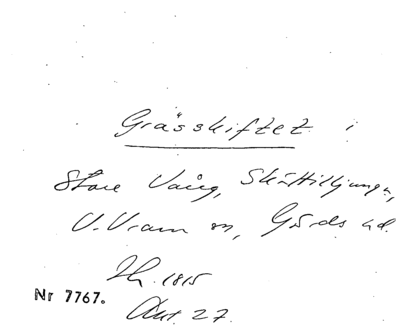 Grässkiftet i
Store Vång, Skättilljunga,
V. Vram sn, Gärds hd.
Hh. 1815
Nr 7767.
Akt. 27